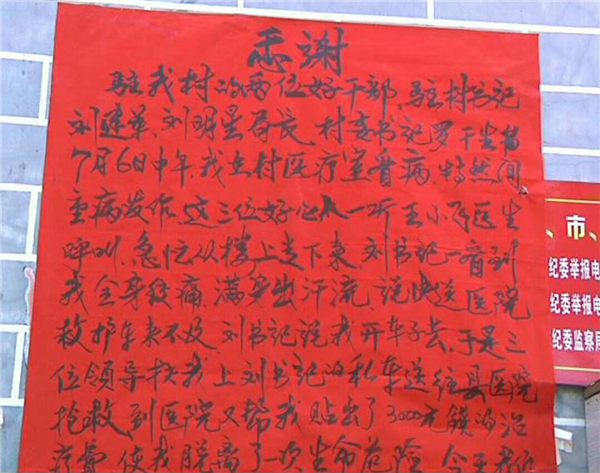 感谢
驻我村的两位好干部、驻村书记
刘建军、刘明星局长、村支书记罗干
7月6日中午、我在村医疗室看病、特然间
重病发作、这三位好心人一听王小 医生
呼叫、急忙从楼上走下来、刘书记一看到
我全身绞痛、满身出汗流、说快送医院
救护车来不及、刘书记说我开车子去、于是三
位领导扶我上刘书记的私车送往县医院
抢救、到医院又帮我贴出了3000元钱的治
疗费、使我脱离了一次生命危险、今天
、市、
纪委举报电
纪委举报电
纪委监察局